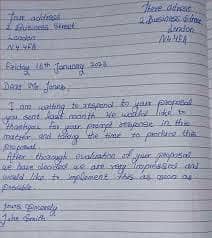 Your address
2 Business Street
London
N4 4EA
There adress
2 Business Street
London
N4 4EA
Friday 16th January 2023
Dear Mr Jones,
I am writing to respond to your proposal
you sent last month. We would like to
thankyou for your prompt response in this
matter and taking the time to produce this
proposal.
After thorough evaluation of your proposal
we have decided we are very impressed and
would like to implement this as soon as
possible.
Yours Sincerely
Julie Smith